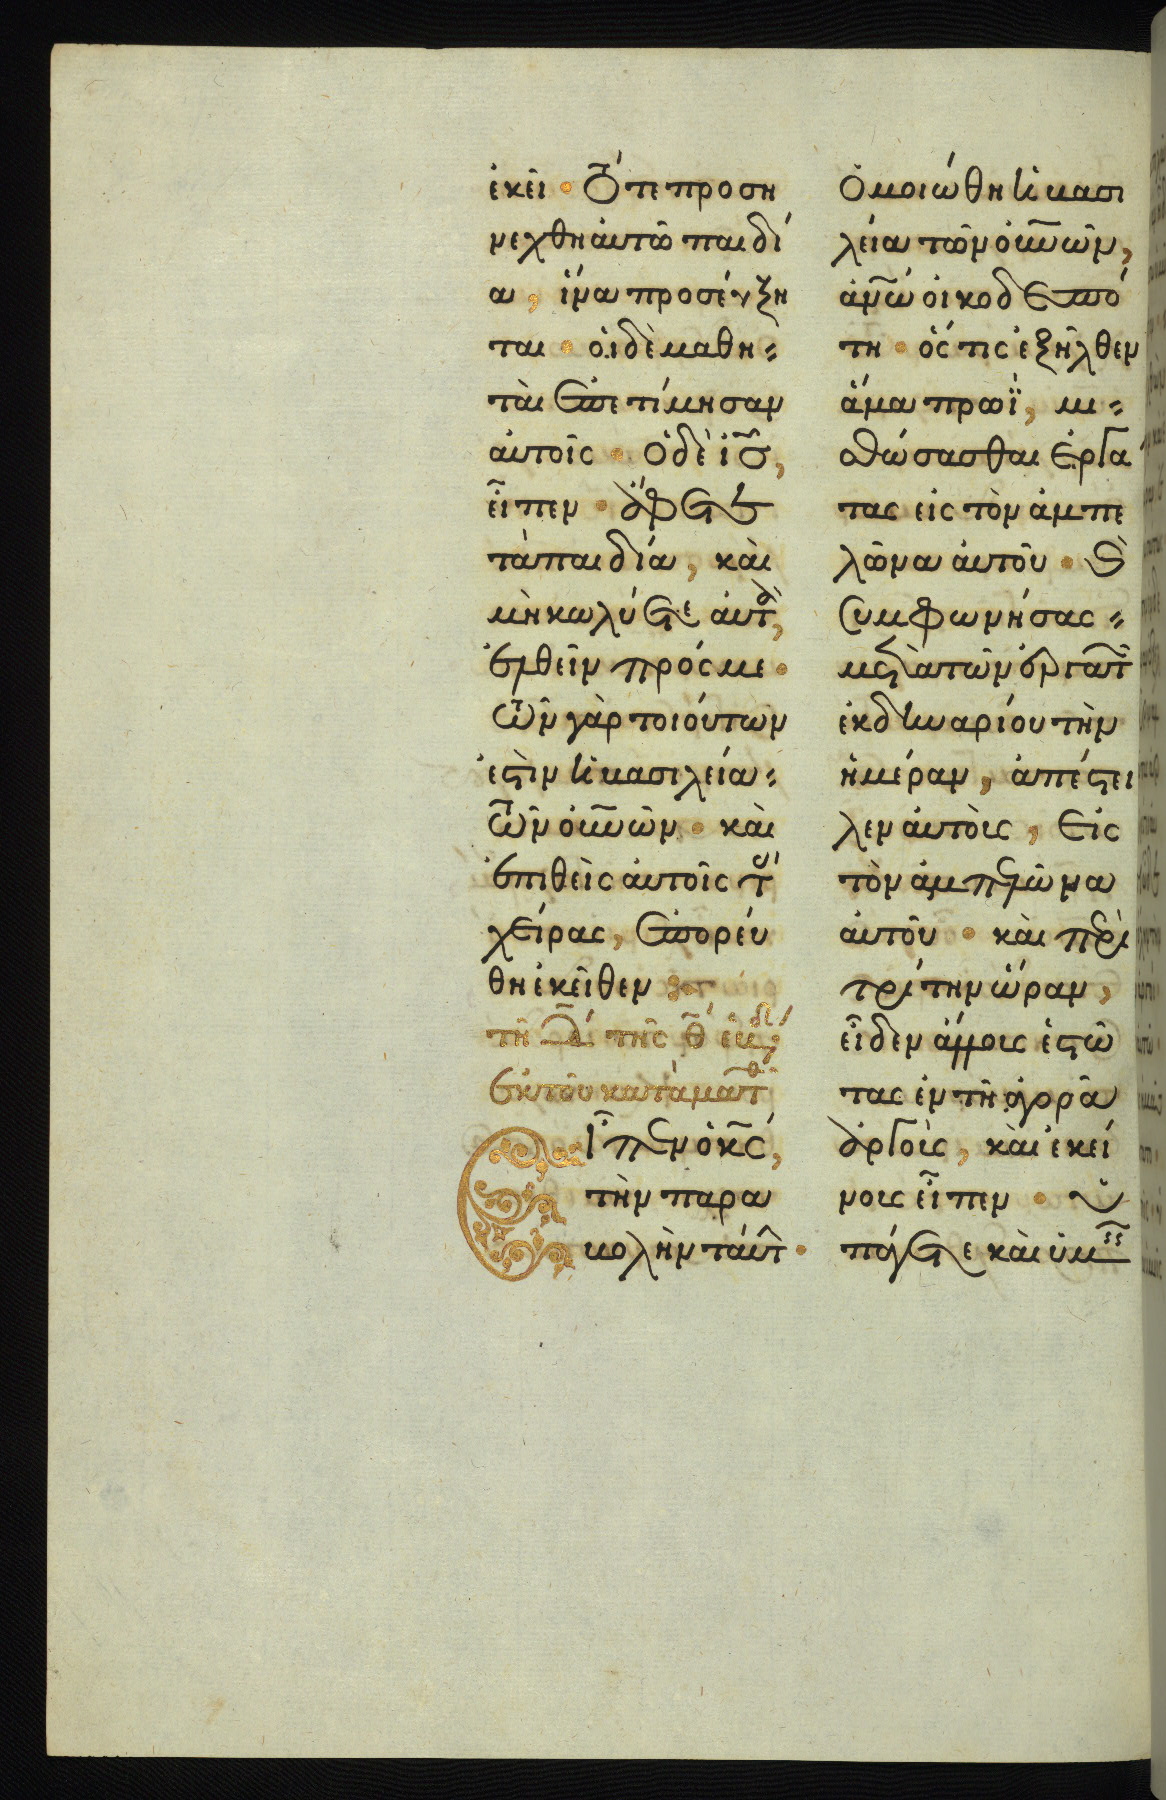 ἐκεῖ · Τότε προση
νεχθη ἀυτῶ παιδί
α, ἵνα προσέυξη
ται · ὁι δὲ μαθη=
ταὶ ἐπετίμησαν
ἀυτοῖς · Ὁ δὲ ἰς̅,
εἶπεν · ἄφετε
τὰ παιδία, καὶ
μὴ κωλύετε ἀυτὰ,
ἐλθεῖν πρός με ·
τῶν γὰρ τοιούτων
ἐστὶν ἡ βασιλεία=
τῶν ὀυ̅νῶν · καὶ
ἐπιθεὶς ἀυτοῖς τὰς
χεῖρας, ἐπορέυ
θη ἐκεῖθεν
τῆ δ̅ τῆς θ̅ ἑβδ
ἐκ τοῦ κατὰ ματθ
εἶπεν ὁ κς̅,
τὴν παρα
βολὴν ταύτ ·
Ὁμοιώθη ἡ βασι
λεία τῶν ὀυ̅νῶν,
ἀν̅ω οἰκοδεσπό
τη · ὅς τις ἐξῆλθεν
ἅμα πρωῒ, μι=
σθώσασθαι ἐργά
τας εἰς τὸν ἀμπε
λῶνα ἀυτοῦ · καὶ
συμφωνήσας=
μετὰ τῶν ἐργατῶν
ἐκ δηναρίου τὴν
ἡμέραν, ἀπέστει
λεν ἀυτοὺς, εἰς
τὸν ἀμπελῶνα
ἀυτοῦ · καὶ περὶ
τρίτην ὥραν,
εἶδεν ἄλλους ἑστῶ
τας ἐν τῆ ἀγορᾶ
ἀργοὺς, καὶ εκεί
νοις εἶπεν · ὑ
πάγετε καὶ ὑμεῖς